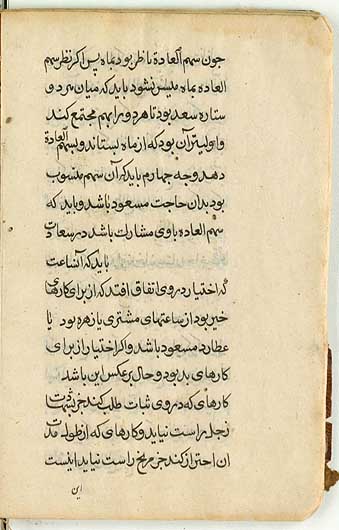 چون سهم السعادة ناظر بود بماه پس اکر نظر سهم
السعاده بماه میسر نشود باید که میان هر دو
ستاره سعد بود تا هر دو را بهم مجتمع کند
و اولیتر آن بود که از ماه بستاند و بسهم السعادة
دهد وجه چهارم باید که آن سهم منسوب
بود بدان حاجت مسعود باشد و باید که
سهم السعاده باوی مشارکت باشد در سعادت
باید که آن ساعت
که اختیار در وی اتفاق افتد که از برای کارهای
خیر بود از ساعتهای مشتری یا زهره بود یا
عطارد مسعود باشد و اکر اختیار از برای
کارهای بد بود و حال بر عکس این باشد
کارهای که در وی ثبات طلب کنند جز بثبات
زحل راست نیاید و کارهای که از طول مدت
آن احتراز کنند جز مریخ راست نیاید اینست
این